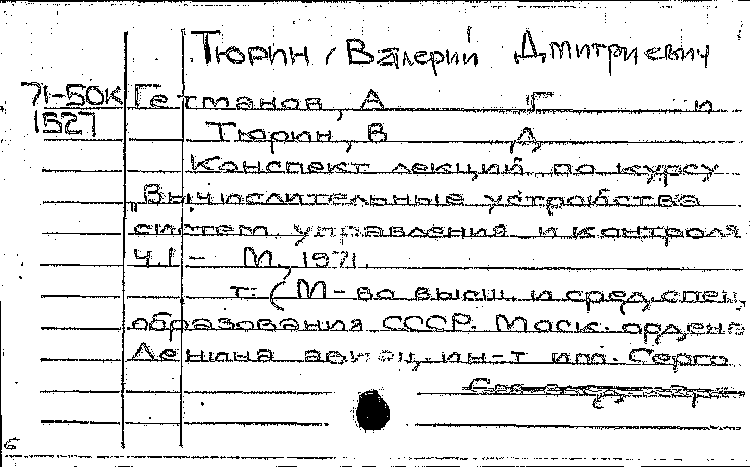 Тюрин, Валерий Дмитриевич
71-50К Гетманов, А Г и
1527 Тюрин, В Д
Конспект лекций по курсу
"Вычислительные устройства
систем управления и контроля
Ч.1 - М, 1971.
т. (М-во высш. и сред. спец.
образования СССР. Моск. ордена
Ленина авиац. ин-т им. Серго
6